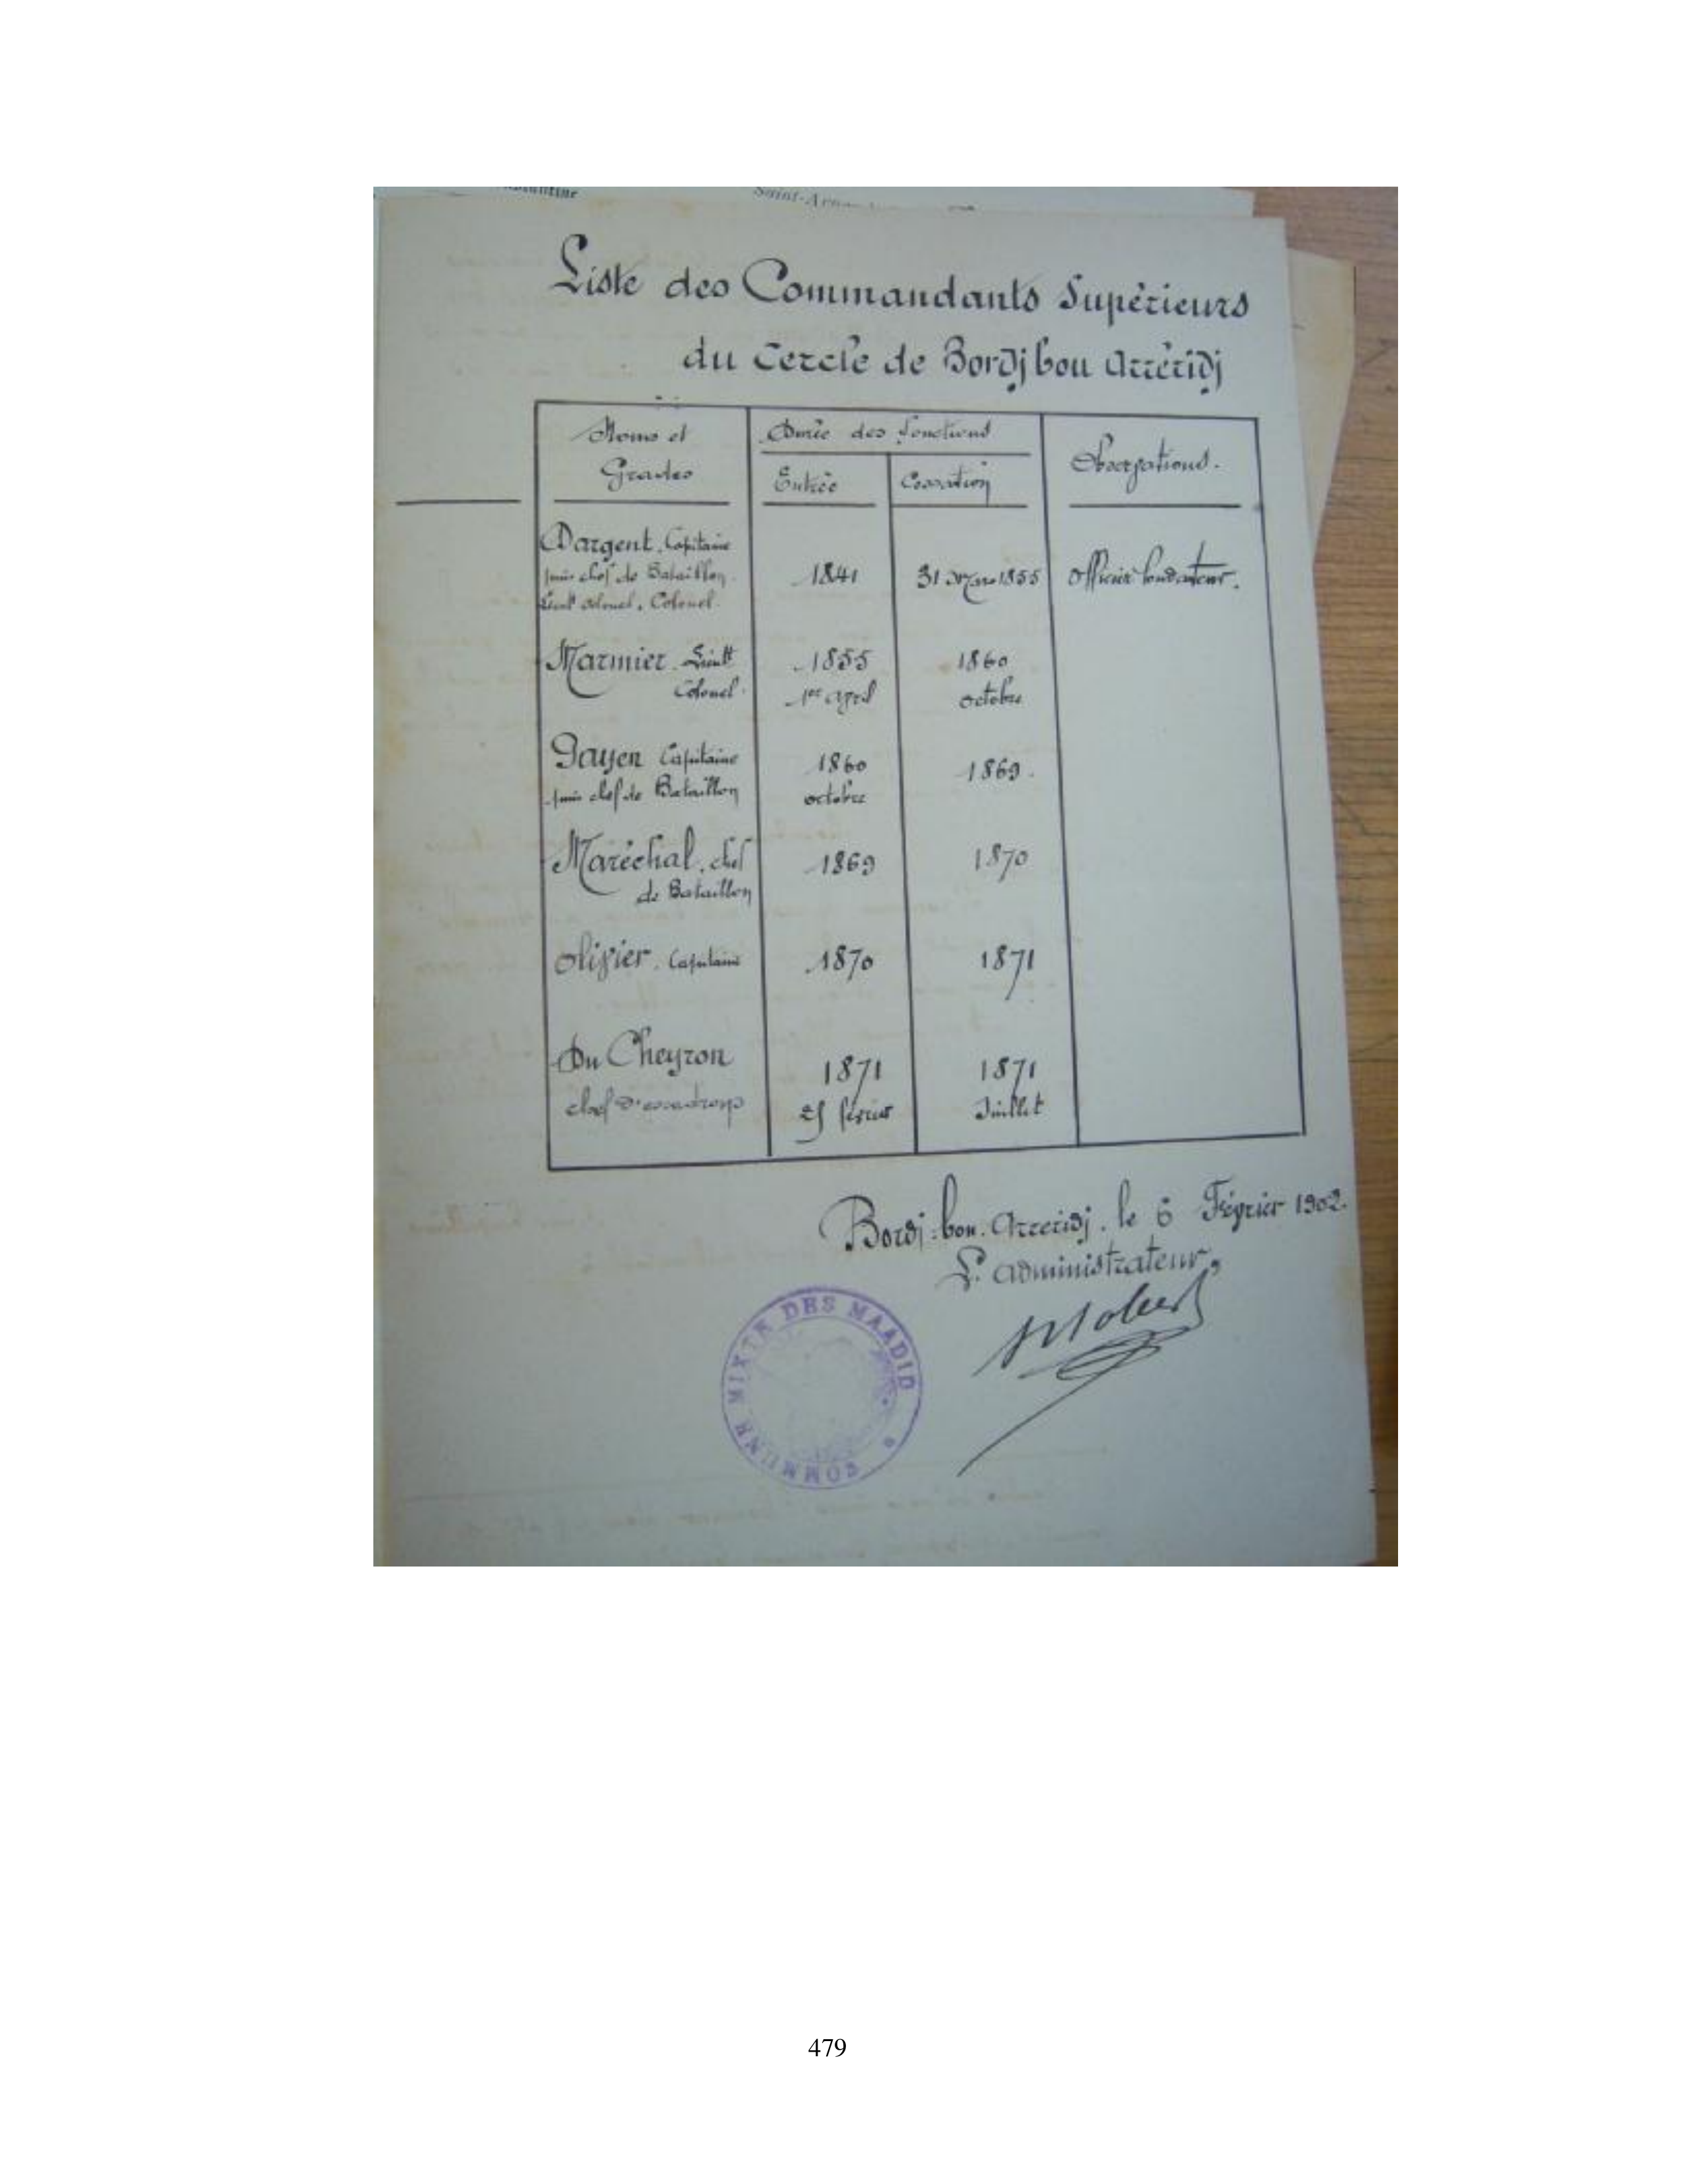 Saint-Arn
Liste des Commandants Supérieurs
du Cercle de Bordj bou Arréridj
Noms et
Grades
Durée des fonctions
Entrée
Cessation
Observations.
Dargent, Capitaine
puis chef de Bataillon
Lieut Colonel, Colonel
1841
31 Mars 1855
Officier fondateur.
Marmier Lieutt
Colonel.
1855
1er avril
1860
octobre
Payen Capitaine
puis chef de Bataillon
1860
octobre
1869.
Maréchal, chef
de Bataillon
1869
1870
Olivier, Capitaine
1870
1871
Du Cheyron
chef d'escadrons
1871
février
1871
Juillet
Bordj-bou-Arreridj, le 6 Février 1902.
L'administrateur,
COMMUNE MIXTE DES MAADID
479